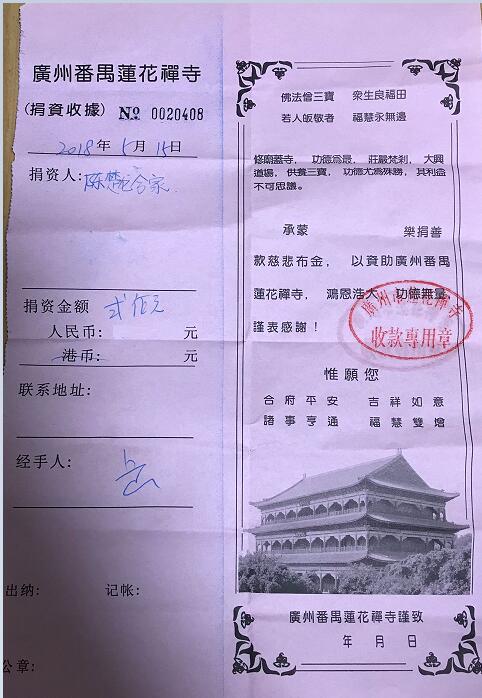 廣州番禺蓮花禪寺
(捐資收據) № 0020408
2018年5月15日
捐资人: 陈楚 合家
捐资金额 贰佰元
人民币: 元
港币: 元
联系地址:
经手人:
出纳: 记帐:
公章:
佛法僧三寶 衆生良福田
若人皈敬者 福慧永無邊
修廟蓋寺,功德爲最,莊嚴梵刹,大興
道場,供養三寶,功德尤爲殊勝,其利益
不可思議。
承蒙 樂捐善
款慈悲布金,以資助廣州番禺
蓮花禪寺,鴻恩浩大,功德無量,
謹表感謝!
收款專用章
惟願您
合府平安 吉祥如意
諸事亨通 福慧雙增
廣州番禺蓮花禪寺謹致
年月日